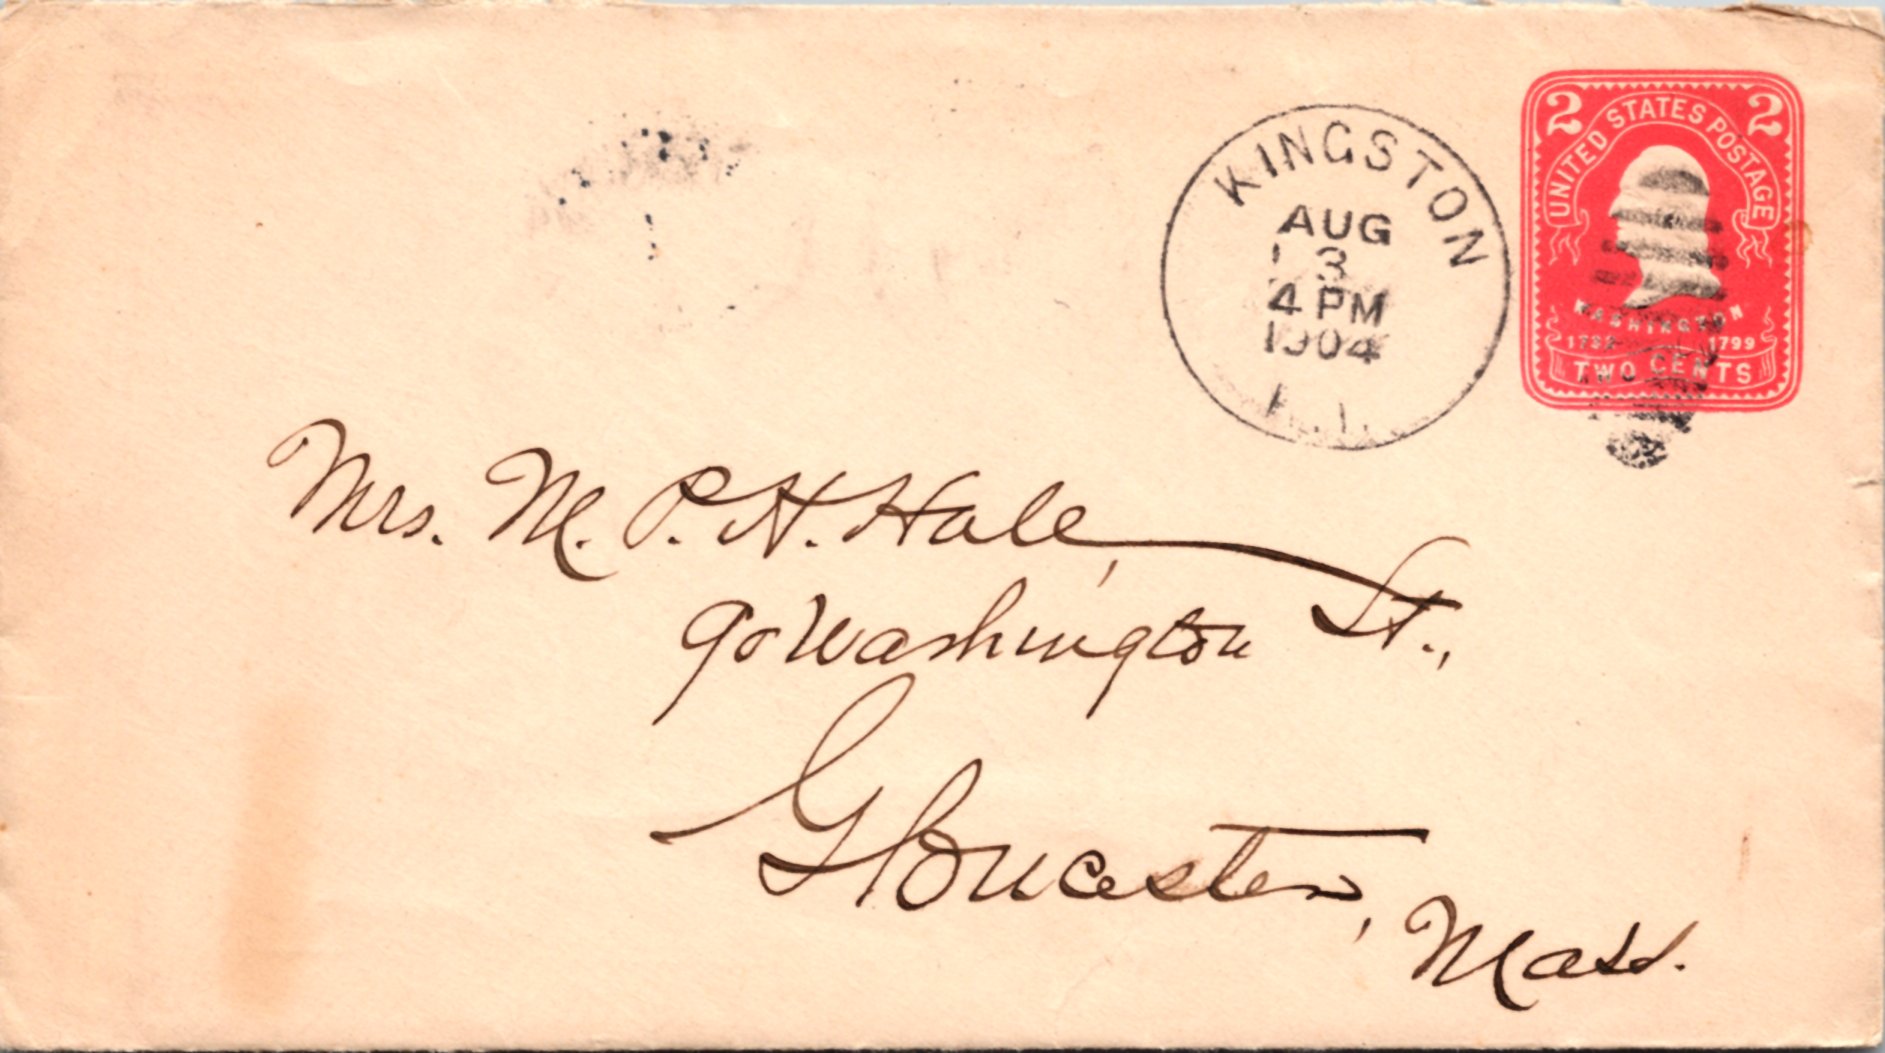 KINGSTON
AUG
3
4 PM
1904
R.I.
2 2
UNITED STATES POSTAGE
WASHINGTON
1732 1799
TWO CENTS
Mrs. M. P. H. Hale,
90 Washington St.,
Gloucester,
Mass.